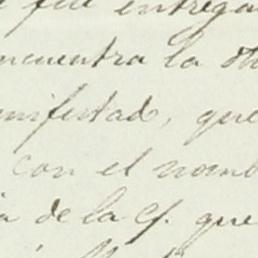 e fué entrega
ncuentra la ot
anifestado, que
con el nomb
a de la Cf. que